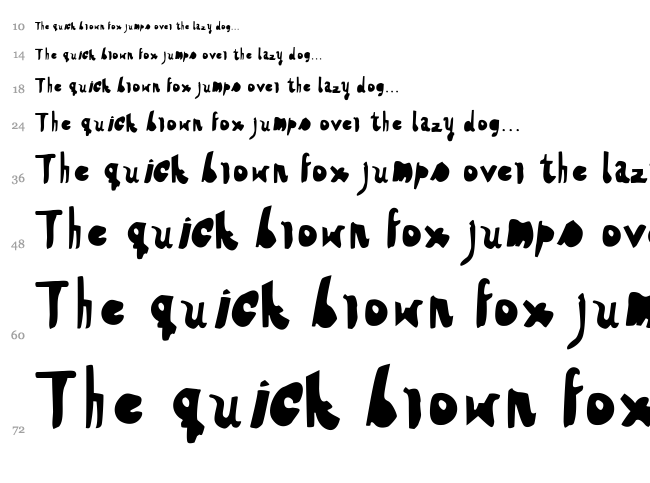 10 The quick brown fox jumps over the lazy dog...
14 The quick brown fox jumps over the lazy dog...
18 The quick brown fox jumps over the lazy dog...
24 The quick brown fox jumps over the lazy dog...
36 The quick brown fox jumps over the laz
48 The quick brown fox jumps ov
60 The quick brown fox jum
72 The quick brown fox